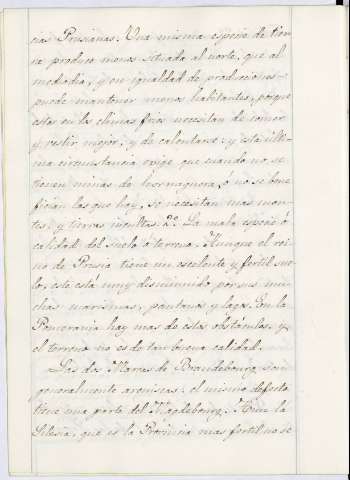 cias Prusianas. Una misma especie de tier-
ra produce menos situada al norte, que al
mediodia, y en igualdad de producciones
puede mantener menos habitantes, porque
estos en los climas frios necesitan de comer
y vestir mejor, y de calentarse: y esta ulti-
ma circunstancia exige que cuando no se
tienen minas de hornaguera, ó no se bene-
fician las que hay, se necesitan mas mon-
tes y tierras incultas. 2º. La mala especie ó
calidad del suelo ó terreno. Aunque el rei-
no de Prusia tiene un escelente y fertil sue-
lo, este está muy disminuido por sus mu-
chas marismas, pantanos y lagos. En la
Pomerania hay mas de estos obstáculos, y
el terreno no es de tan buena calidad.
Las dos Marcas de Brandebourg son
generalmente areniscas: el mismo defecto
tiene una parte del Magdebourg. Aun la
Silesia, que es la Provincia mas fertil no se